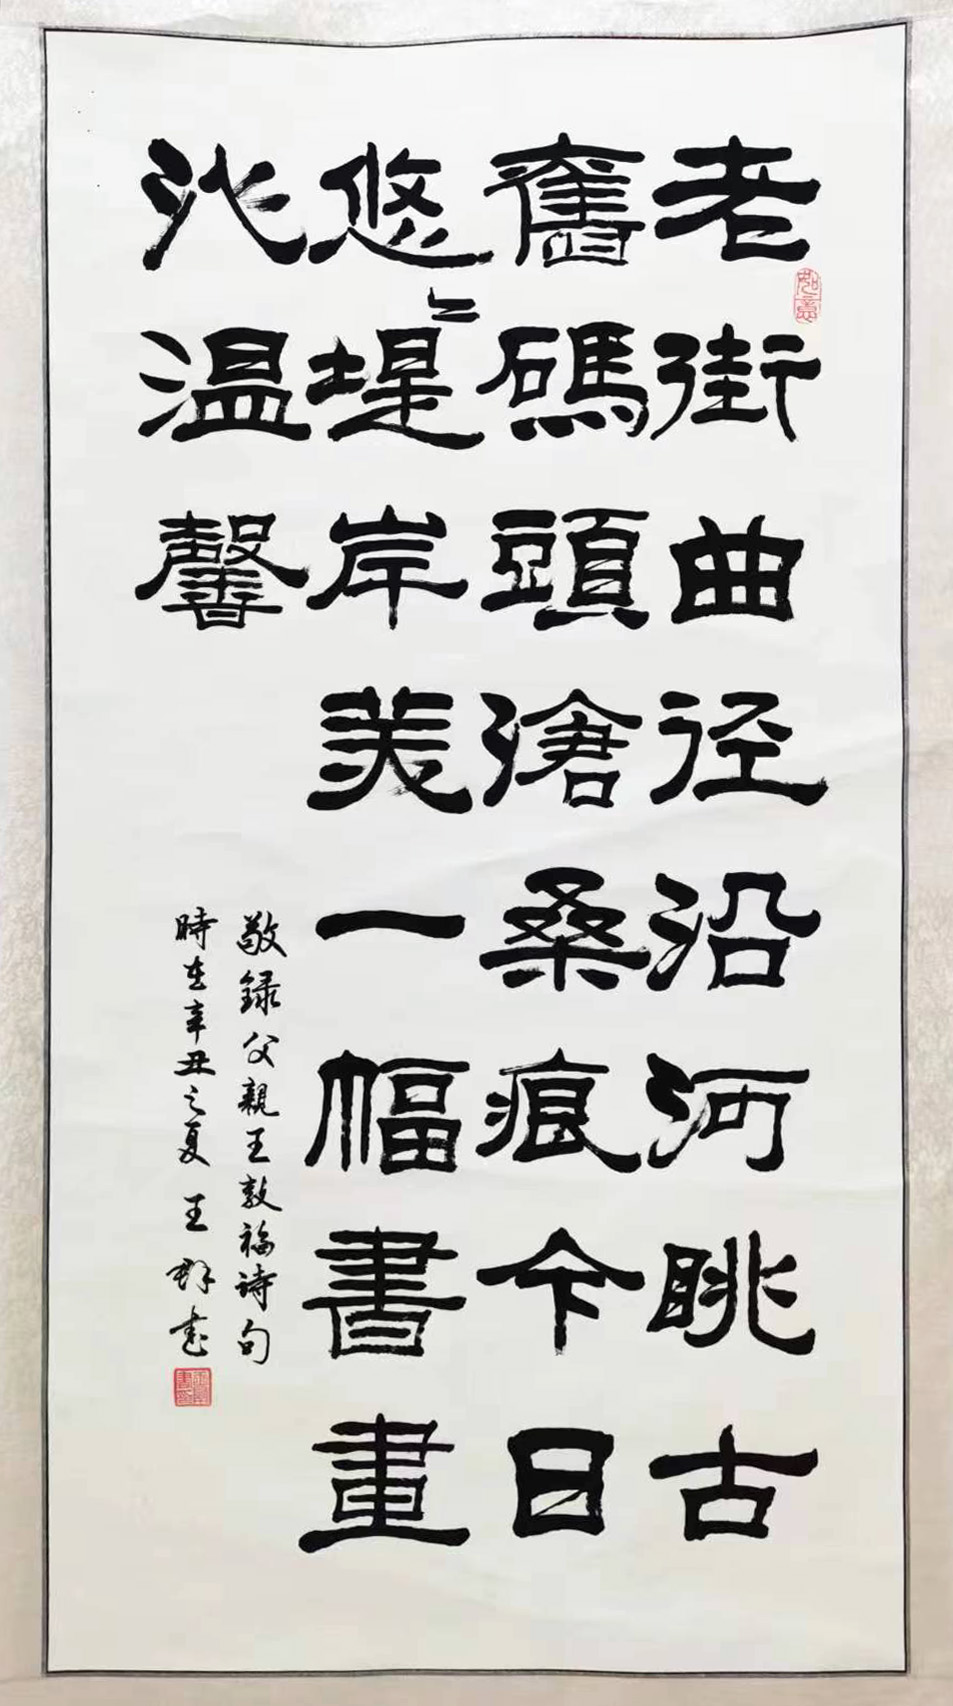 老街曲径沿河眺古
舊碼頭滄桑痕今日
悠〻堤岸美一幅書畫
沁温馨
敬録父親王敦福诗句
時在辛丑之夏 王群书
如意